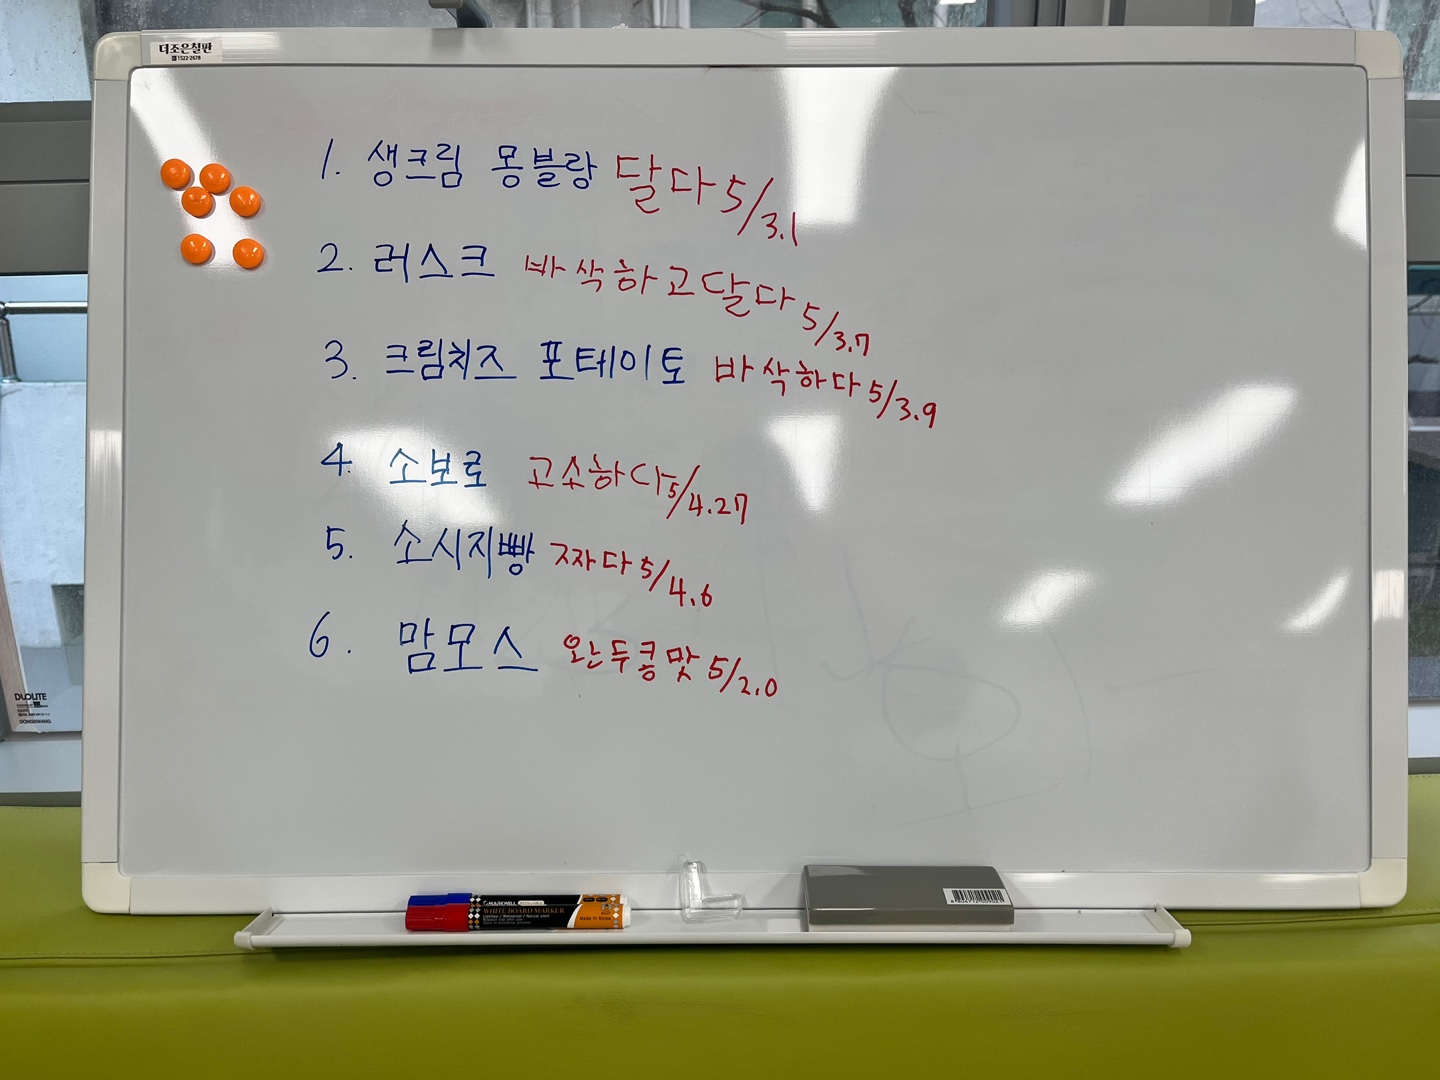 더조은칠판
1522-2678
1. 생크림 몽블랑 달다 5/3.1
2. 러스크 바삭하고달다 5/3.7
3. 크림치즈 포테이토 바삭하다 5/3.9
4. 소보로 고소하다 5/4.27
5. 소시지빵 짜다 5/4.6
6. 맘모스 완두콩맞 5/2.0
DLOLITE
DONGKWANG
MARKWILL
WHITE BOARD MARKER
Made in Korea